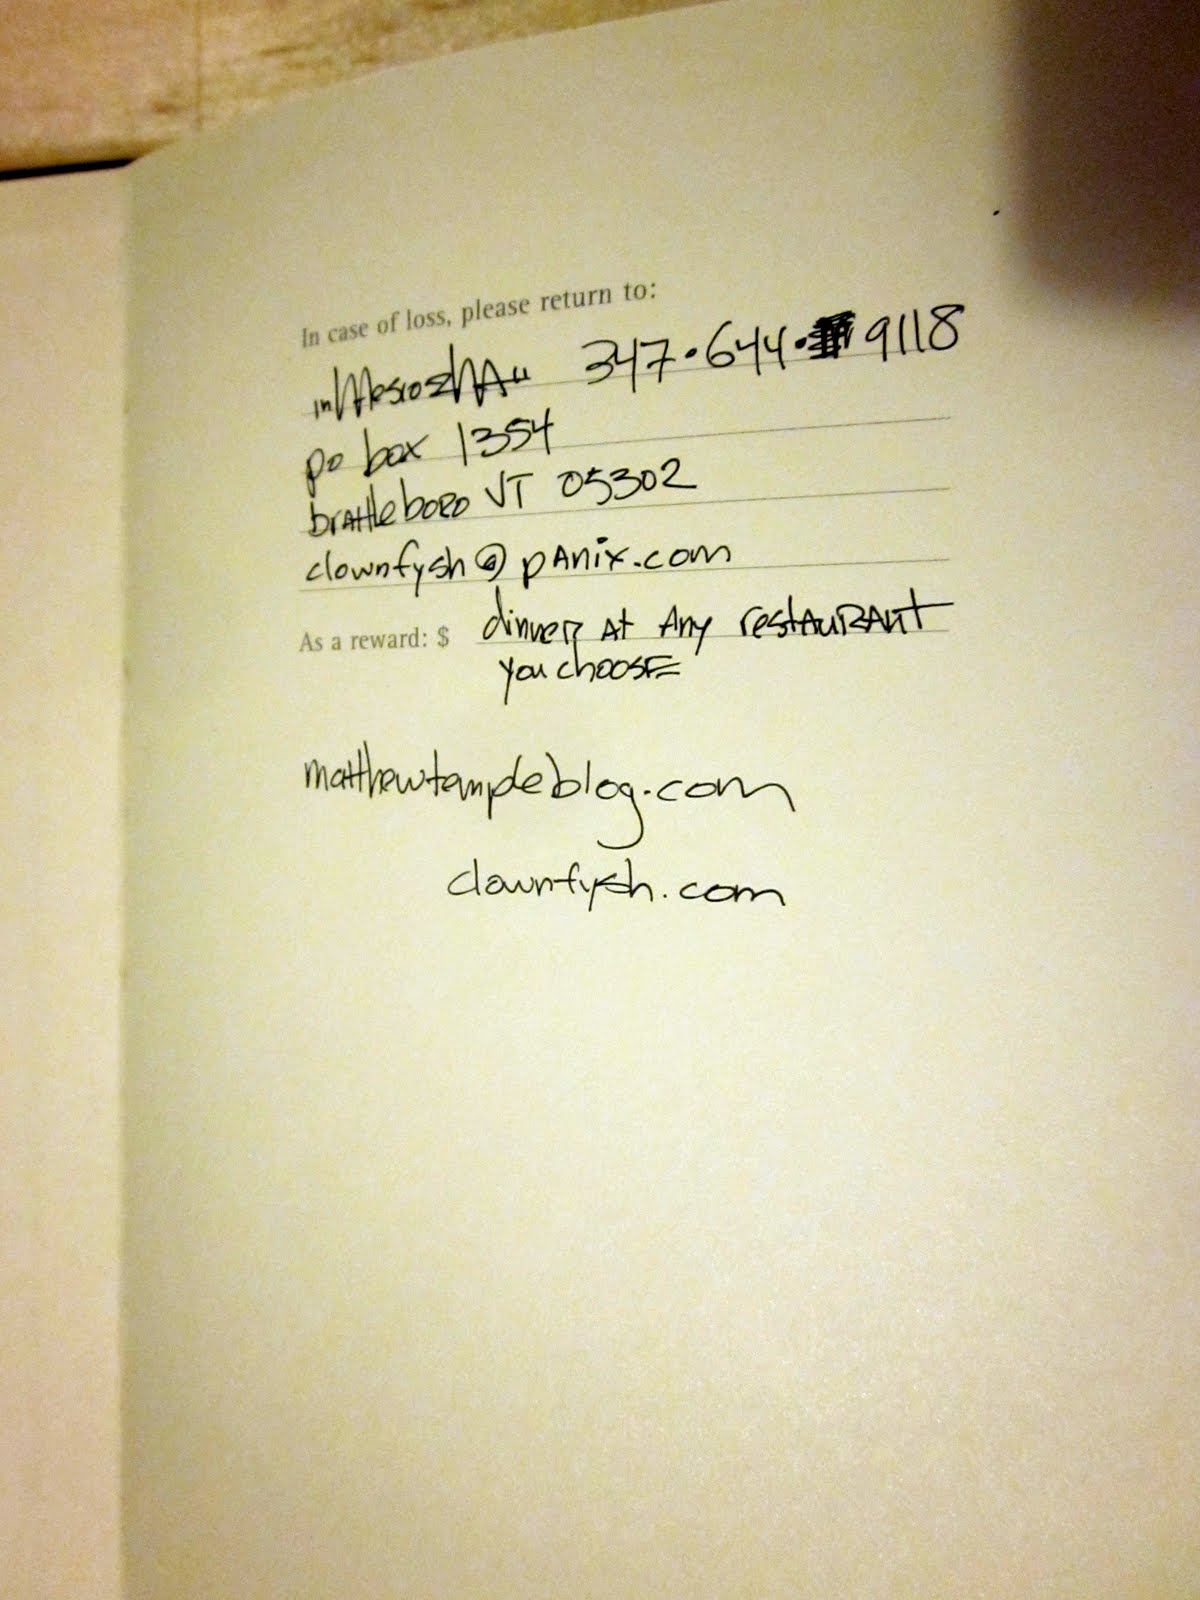 In case of loss, please return to:
347·644· 9118
po box 1354
brattleboro VT 05302
clownfysh@panix.com
As a reward: $ dinner at any restaurant
you choose
matthewtempleblog.com
clownfysh.com